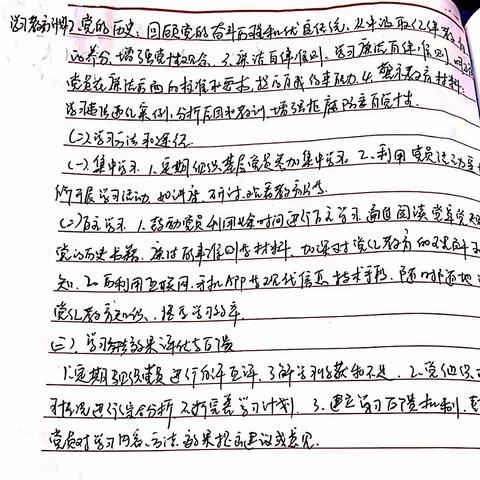 党的历史：回顾党的奋斗历程和优良传统，从中汲取
的养分，增强党性观念。3.廉洁自律准则，学习廉洁自律准则，
党员在廉洁方面的标准和要求，提高自我约束能力。4.警示教育材料：
学习违法违纪案例，分析原因和教训，增强拒腐防变自觉性。
(二)学习方法和途径
(一)集中学习 1.定期组织基层党员参加集中学习 2.利用党员活动
所开展学习活动，如讲座、研讨、观看教育片等
(二)自主学习 1.鼓励党员利用业余时间进行自主学习，通过阅读党章党
党的历史书籍、廉洁自律准则等材料，加深对党纪教育的理解和
知。2.再利用互联网、手机APP等现代信息技术手段，随时随地
党纪教育知识，提高学习效率
(三)学习 效果评估与反馈
1.定期组织党员进行自评互评，了解学习收获和不足。2.党组织
情况进行综合分析 不断完善学习计划。3.建立学习反馈机制，
党员对学习内容、方法、效果提出建议或意见.